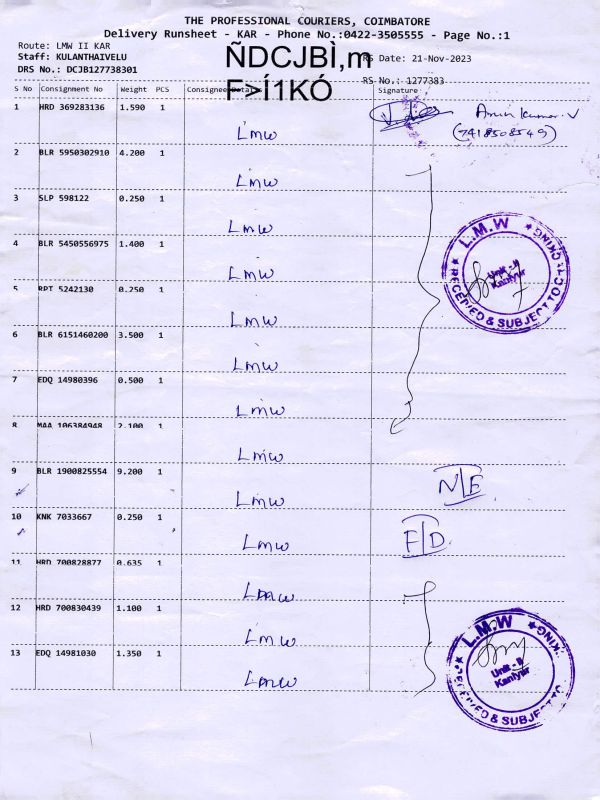 THE PROFESSIONAL COURIERS, COIMBATORE
Delivery Runsheet - KAR - Phone No.:0422-3505555 - Page No.:1
Route: LMW II KAR
Staff: KULANTHAIVELU
RS Date: 21-Nov-2023
DRS No.: DCJB127738301
ÑDCJBÌ,m
F>Í1KÓ
RS No.: 1277383
S No Consignment No Weight PCS Consignee Details Signature
1 HRD 369283136 1.590 1 LMW Arun Kumar. V
(7418508549)
2 BLR 5950302910 4.200 1 LMW
3 SLP 598122 0.250 1 LMW
4 BLR 5450556975 1.400 1 LMW
5 RPT 5242130 0.250 1 LMW
6 BLR 6151460200 3.500 1 LMW
7 EDQ 14980396 0.500 1 LMW
8 MAA 106384948 2.100 1 LMW
L.M.W
Unit - II
Kaniyur
RECEIVED & SUBJECT TO CHECKING
9 BLR 1900825554 9.200 1 LMW N/E
10 KNK 7033667 0.250 1 LMW F/D
11 HRD 700828877 0.635 1 LMW
12 HRD 700830439 1.100 1 LMW
13 EDQ 14981030 1.350 1 LMW
L.M.W
Unit - II
Kaniyur